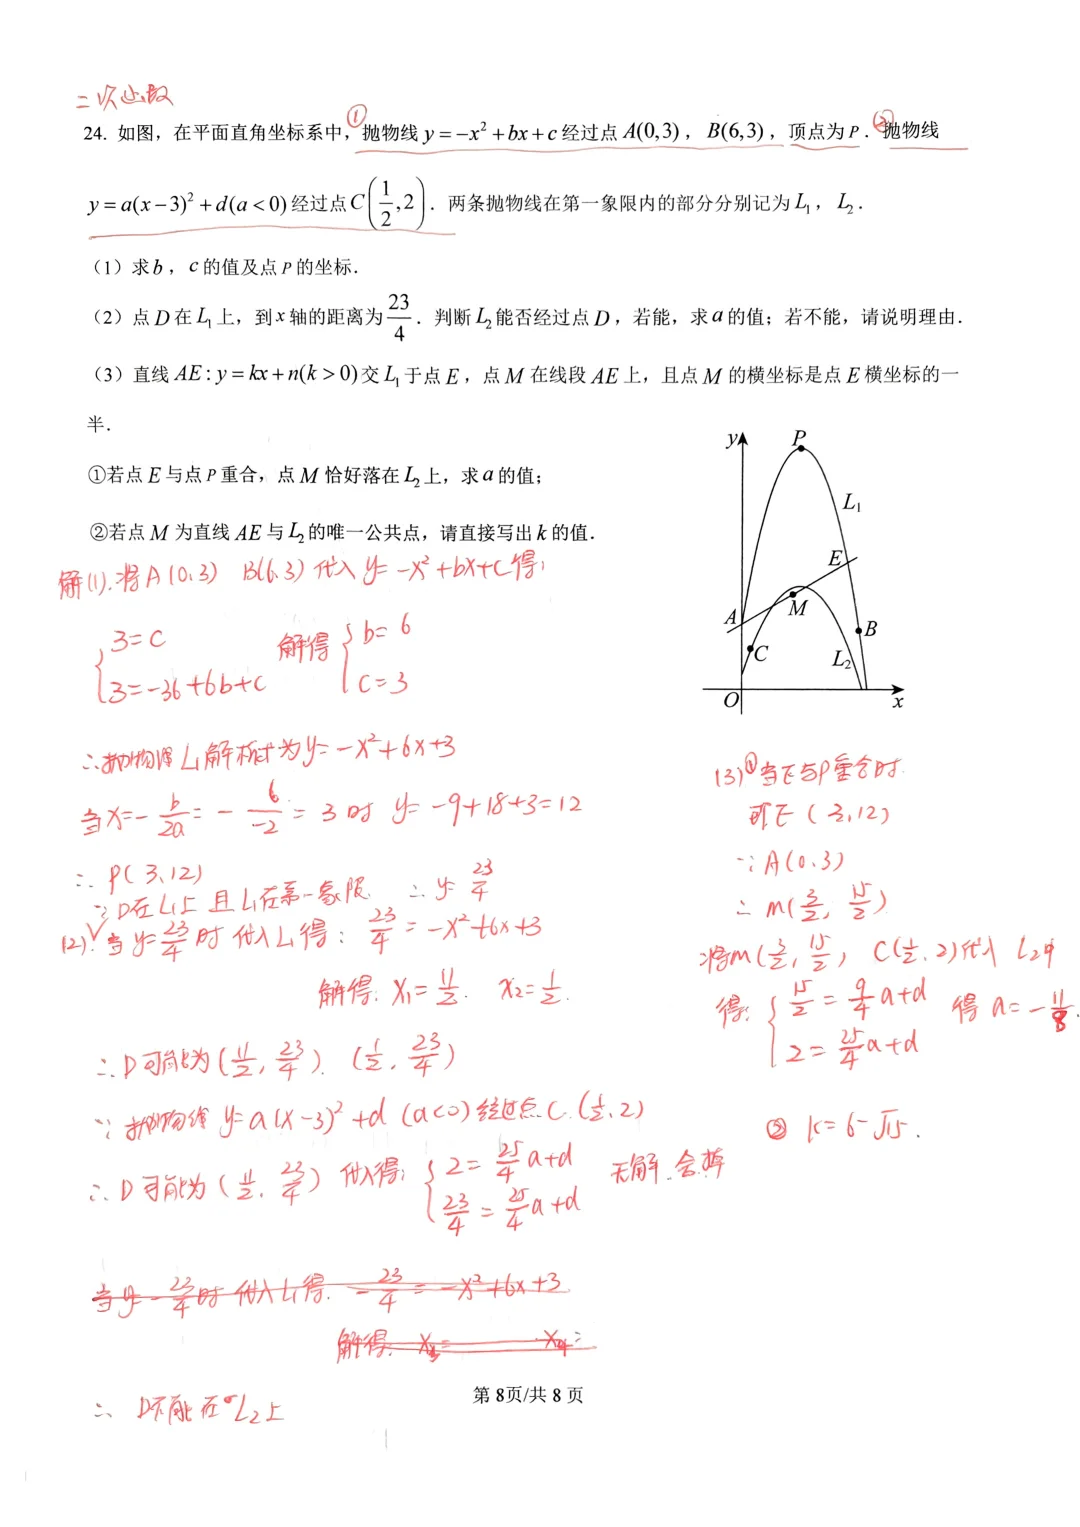 二次函数
24. 如图，在平面直角坐标系中，①抛物线 y = −x² + bx + c 经过点 A(0,3)，B(6,3)，顶点为 P．②抛物线
y = a(x − 3)² + d(a < 0) 经过点 C(1/2, 2)．两条抛物线在第一象限内的部分分别记为 L₁，L₂．
（1）求 b，c 的值及点 P 的坐标．
（2）点 D 在 L₁ 上，到 x 轴的距离为 23/4．判断 L₂ 能否经过点 D，若能，求 a 的值；若不能，请说明理由．
（3）直线 AE : y = kx + n(k > 0) 交 L₁ 于点 E，点 M 在线段 AE 上，且点 M 的横坐标是点 E 横坐标的一
半．
①若点 E 与点 P 重合，点 M 恰好落在 L₂ 上，求 a 的值；
②若点 M 为直线 AE 与 L₂ 的唯一公共点，请直接写出 k 的值．
y
P
L₁
E
M
A
B
C
L₂
O
x
解(1). 将A(0,3) B(6,3) 代入 y= −x²+bx+c 得:
{ 3=c
3=−36+6b+c
解得 { b=6
c=3
∴抛物线L₁解析式为y= −x²+6x+3
当x=−b/2a = − 6/−2 = 3时 y= −9+18+3=12
∴ P(3,12)
∵D在L₁上 且L₁在第一象限 ∴ y= 23/4
(2). 当y=23/4时 代入L₁得: 23/4 = −x²+6x+3
解得: x₁= 11/2. x₂=1/2.
∴D可能为(11/2, 23/4). (1/2, 23/4)
∵ 抛物线 y=a(x−3)²+d (a<0) 经过点C.(1/2,2)
∴D可能为(11/2, 23/4) 代入得: { 2= 25/4 a+d
23/4 = 25/4 a+d
无解.舍弃
当y=−23/4时 代入L₁得. −23/4 = −x²+6x+3
解得. x₃= x₄=
∴ D不能在L₂上
(3)①当E与P重合时.
即E(3,12)
∵A(0.3)
∴ M(3/2, 15/2)
将M(3/2, 15/2), C(1/2,2)代入 L₂中
得: { 15/2 = 9/4 a+d
2= 25/4 a+d
得 a=−11/8.
② k=6−√15.
第 8页/共 8 页